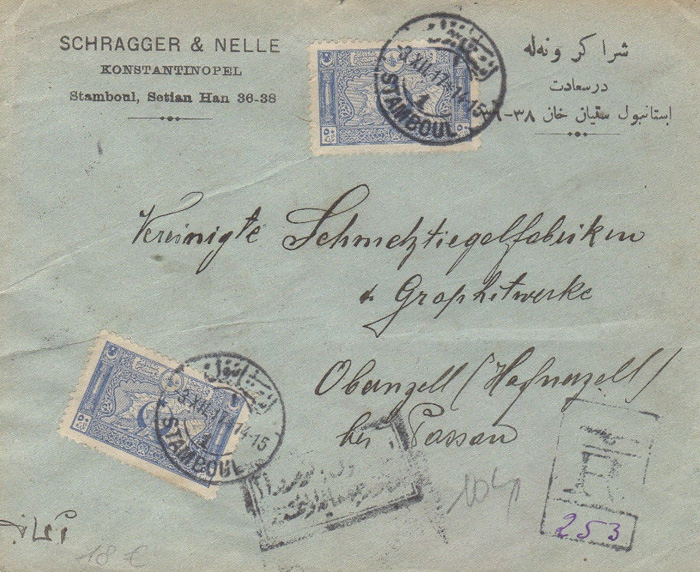 SCHRAGGER & NELLE
KONSTANTINOPEL
Stamboul, Setian Han 36-38
شرا كر ونه له
در سعادت
استانبول سقیان خان ٣٨-
-3.XII.17.14-15
1
STAMBOUL
Vereinigte Schmelztiegelfabriken
& Graphitwerke
Obernzell (Hafnerzell)
bei Passau
3.XII.17 14-15
1
STAMBOUL
253
18 €